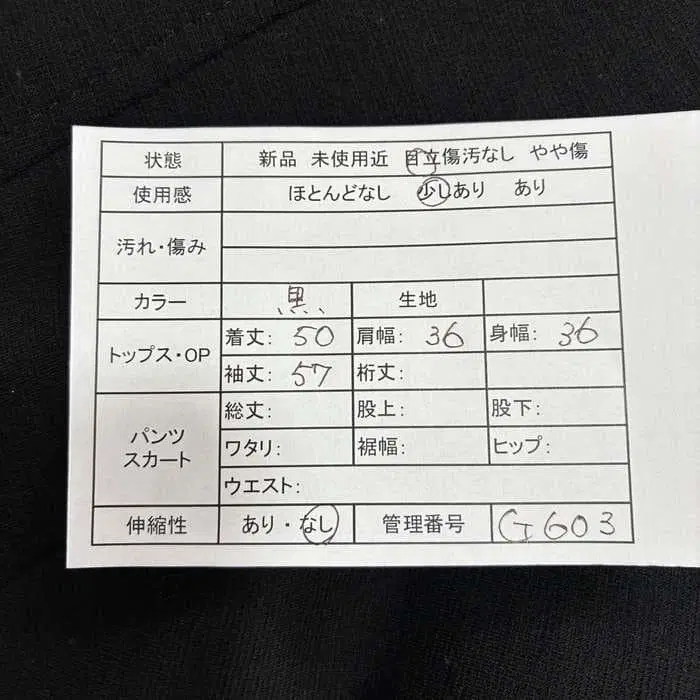 状態 新品 未使用近 目立傷汚なし やや傷
使用感 ほとんどなし 少しあり あり
汚れ・傷み
カラー 黒 生地
トップス・OP 着丈: 50 肩幅: 36 身幅: 36
袖丈: 57 裄丈:
パンツ スカート 総丈: 股上: 股下:
ワタリ: 裾幅: ヒップ:
ウエスト:
伸縮性 あり・なし 管理番号 G603